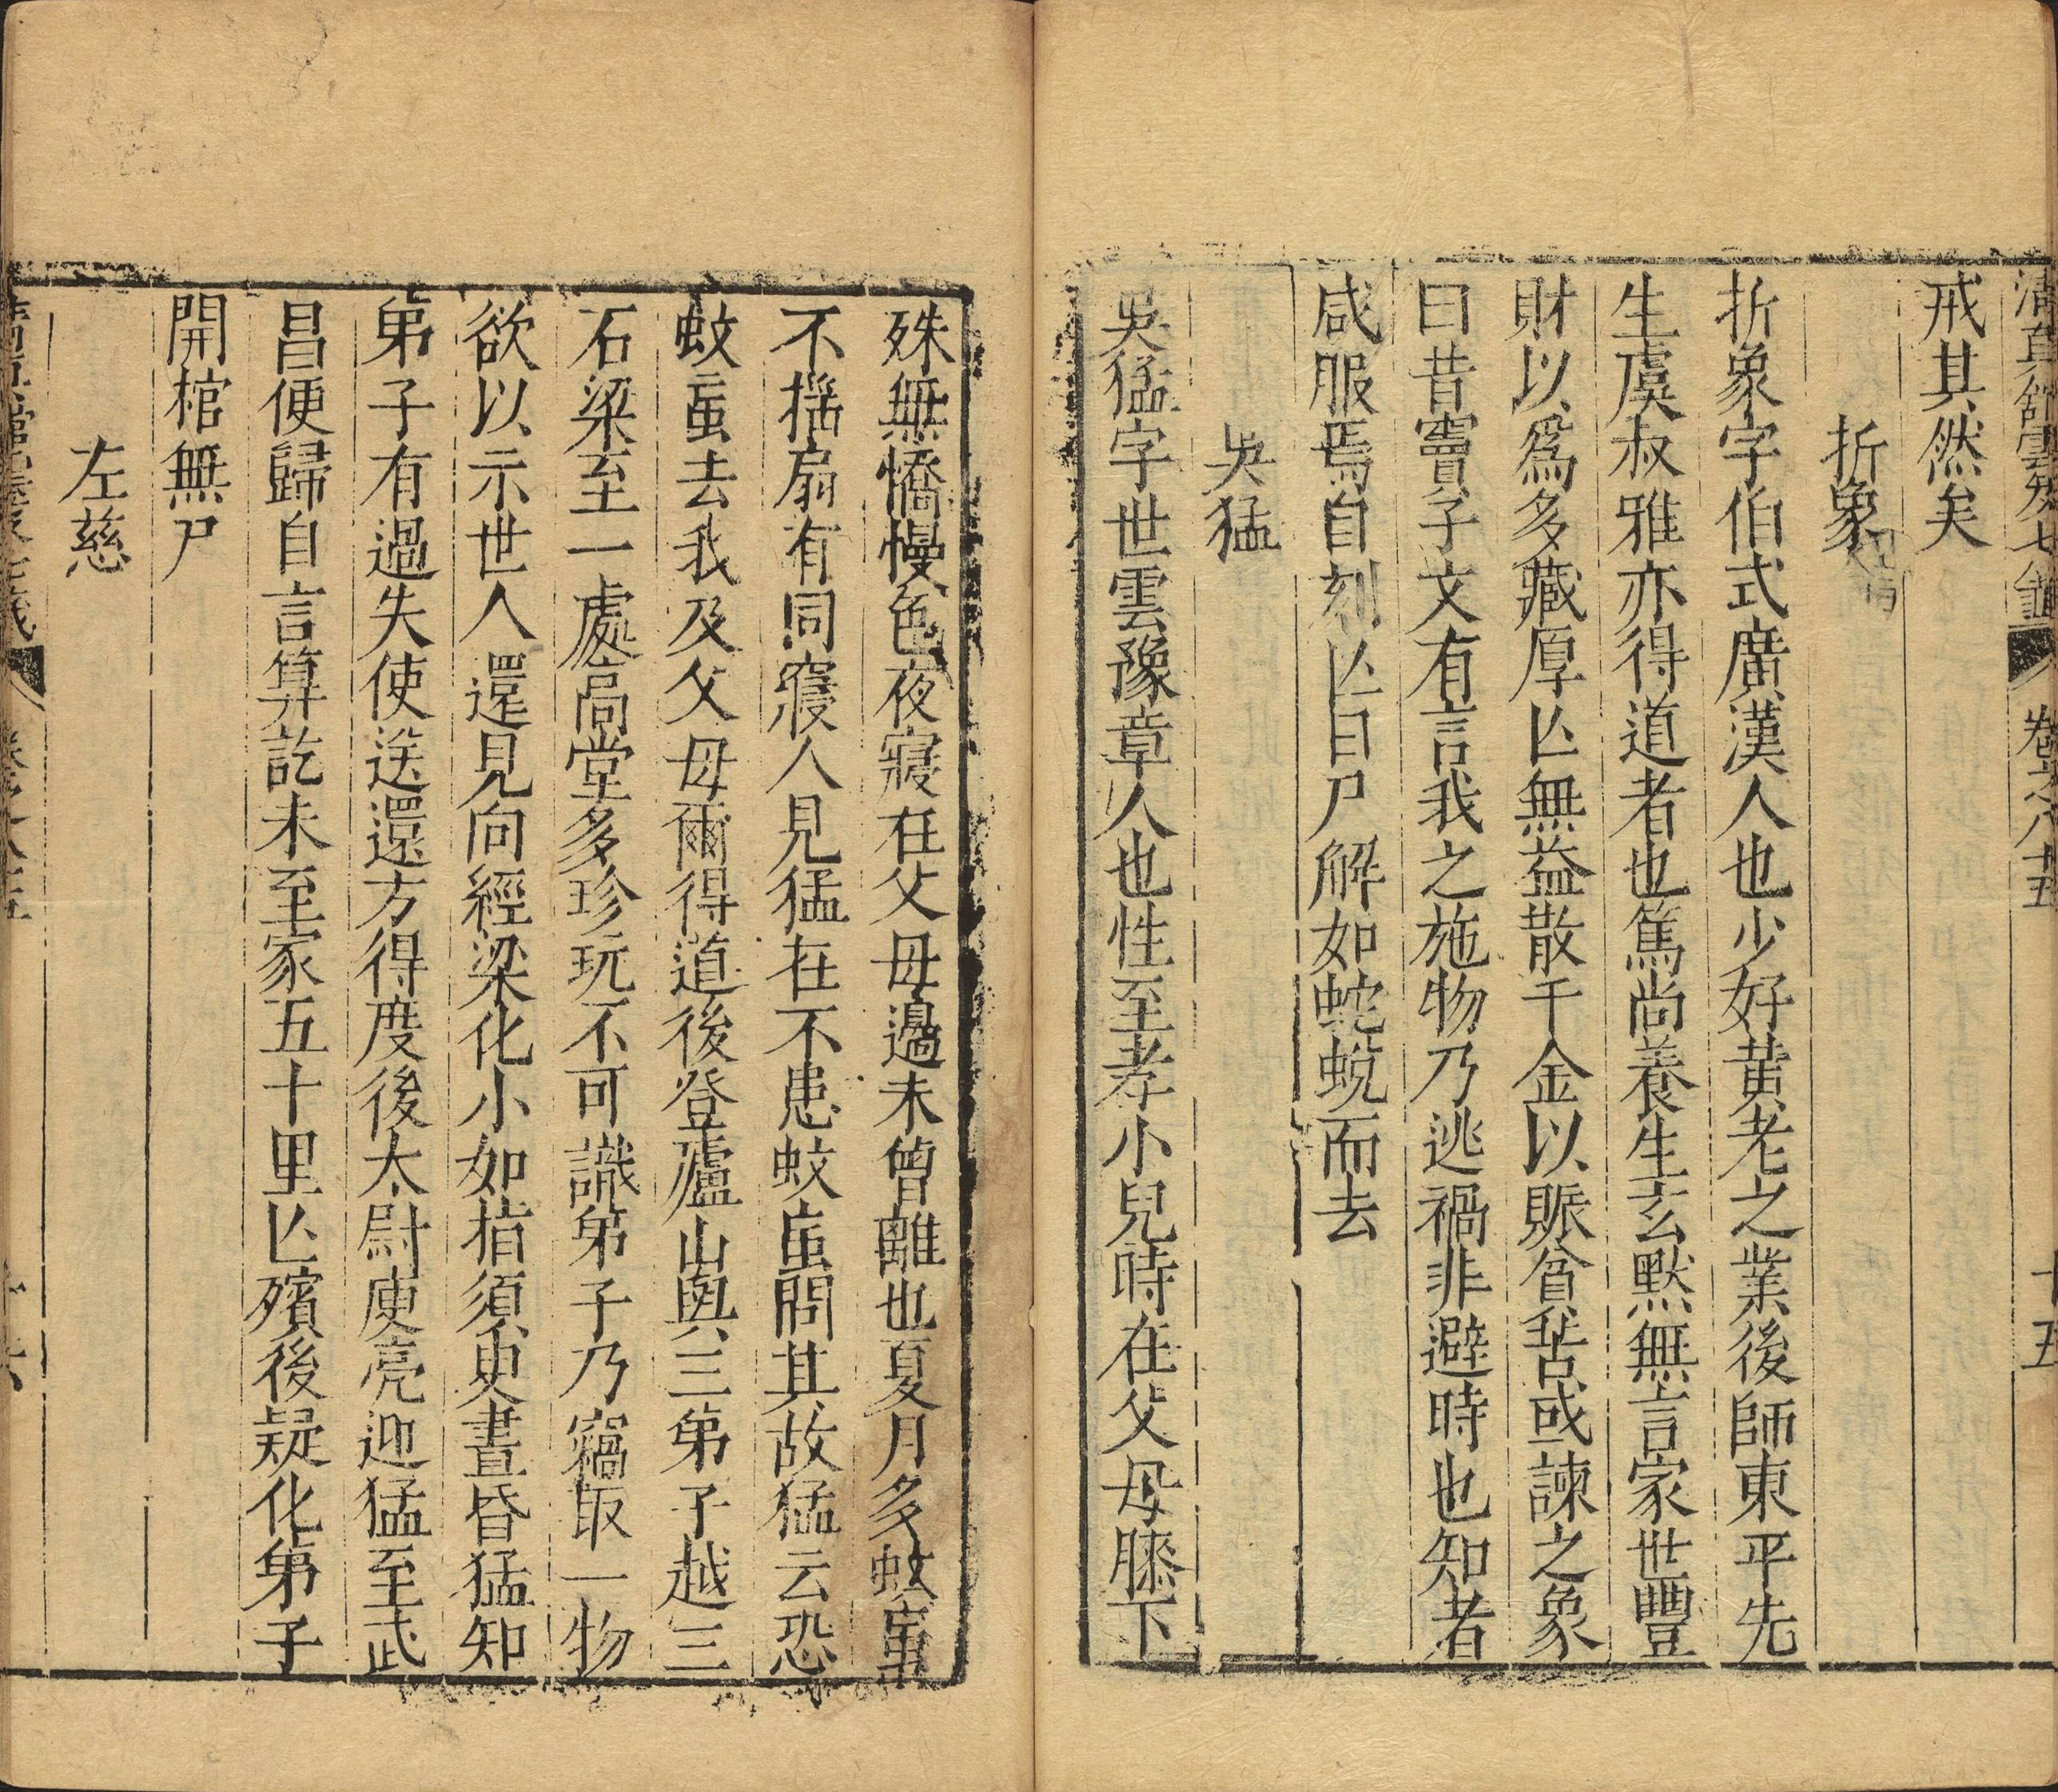 清真館雲笈七籤 卷之八十五 十五
戒其然矣
折象
折象字伯式廣漢人也少好黃老之業後師東平先
生虞叔雅亦得道者也篤尚養生玄默無言家世豐
財以爲多藏厚亾無益散千金以賑貧苦或諫之象
曰昔竇子文有言我之施物乃逃禍非避時也知者
咸服焉自刻亾日尸解如蛇蛻而去
吳猛
吳猛字世雲豫章人也性至孝小兒時在父母膝下
殊無憍慢色夜寢在父母邊未曾離也夏月多蚊䖟
不搖扇有同寢人見猛在不患蚊䖟問其故猛云恐
蚊䖟去我及父母爾得道後登廬山與三弟子越三
石梁至一處高堂多珍玩不可識弟子乃竊取一物
欲以示世人還見向經梁化小如指須臾晝昏猛知
弟子有過失使送還方得度後太尉庾亮迎猛至武
昌便歸自言算訖未至家五十里亾殯後疑化弟子
開棺無尸
左慈